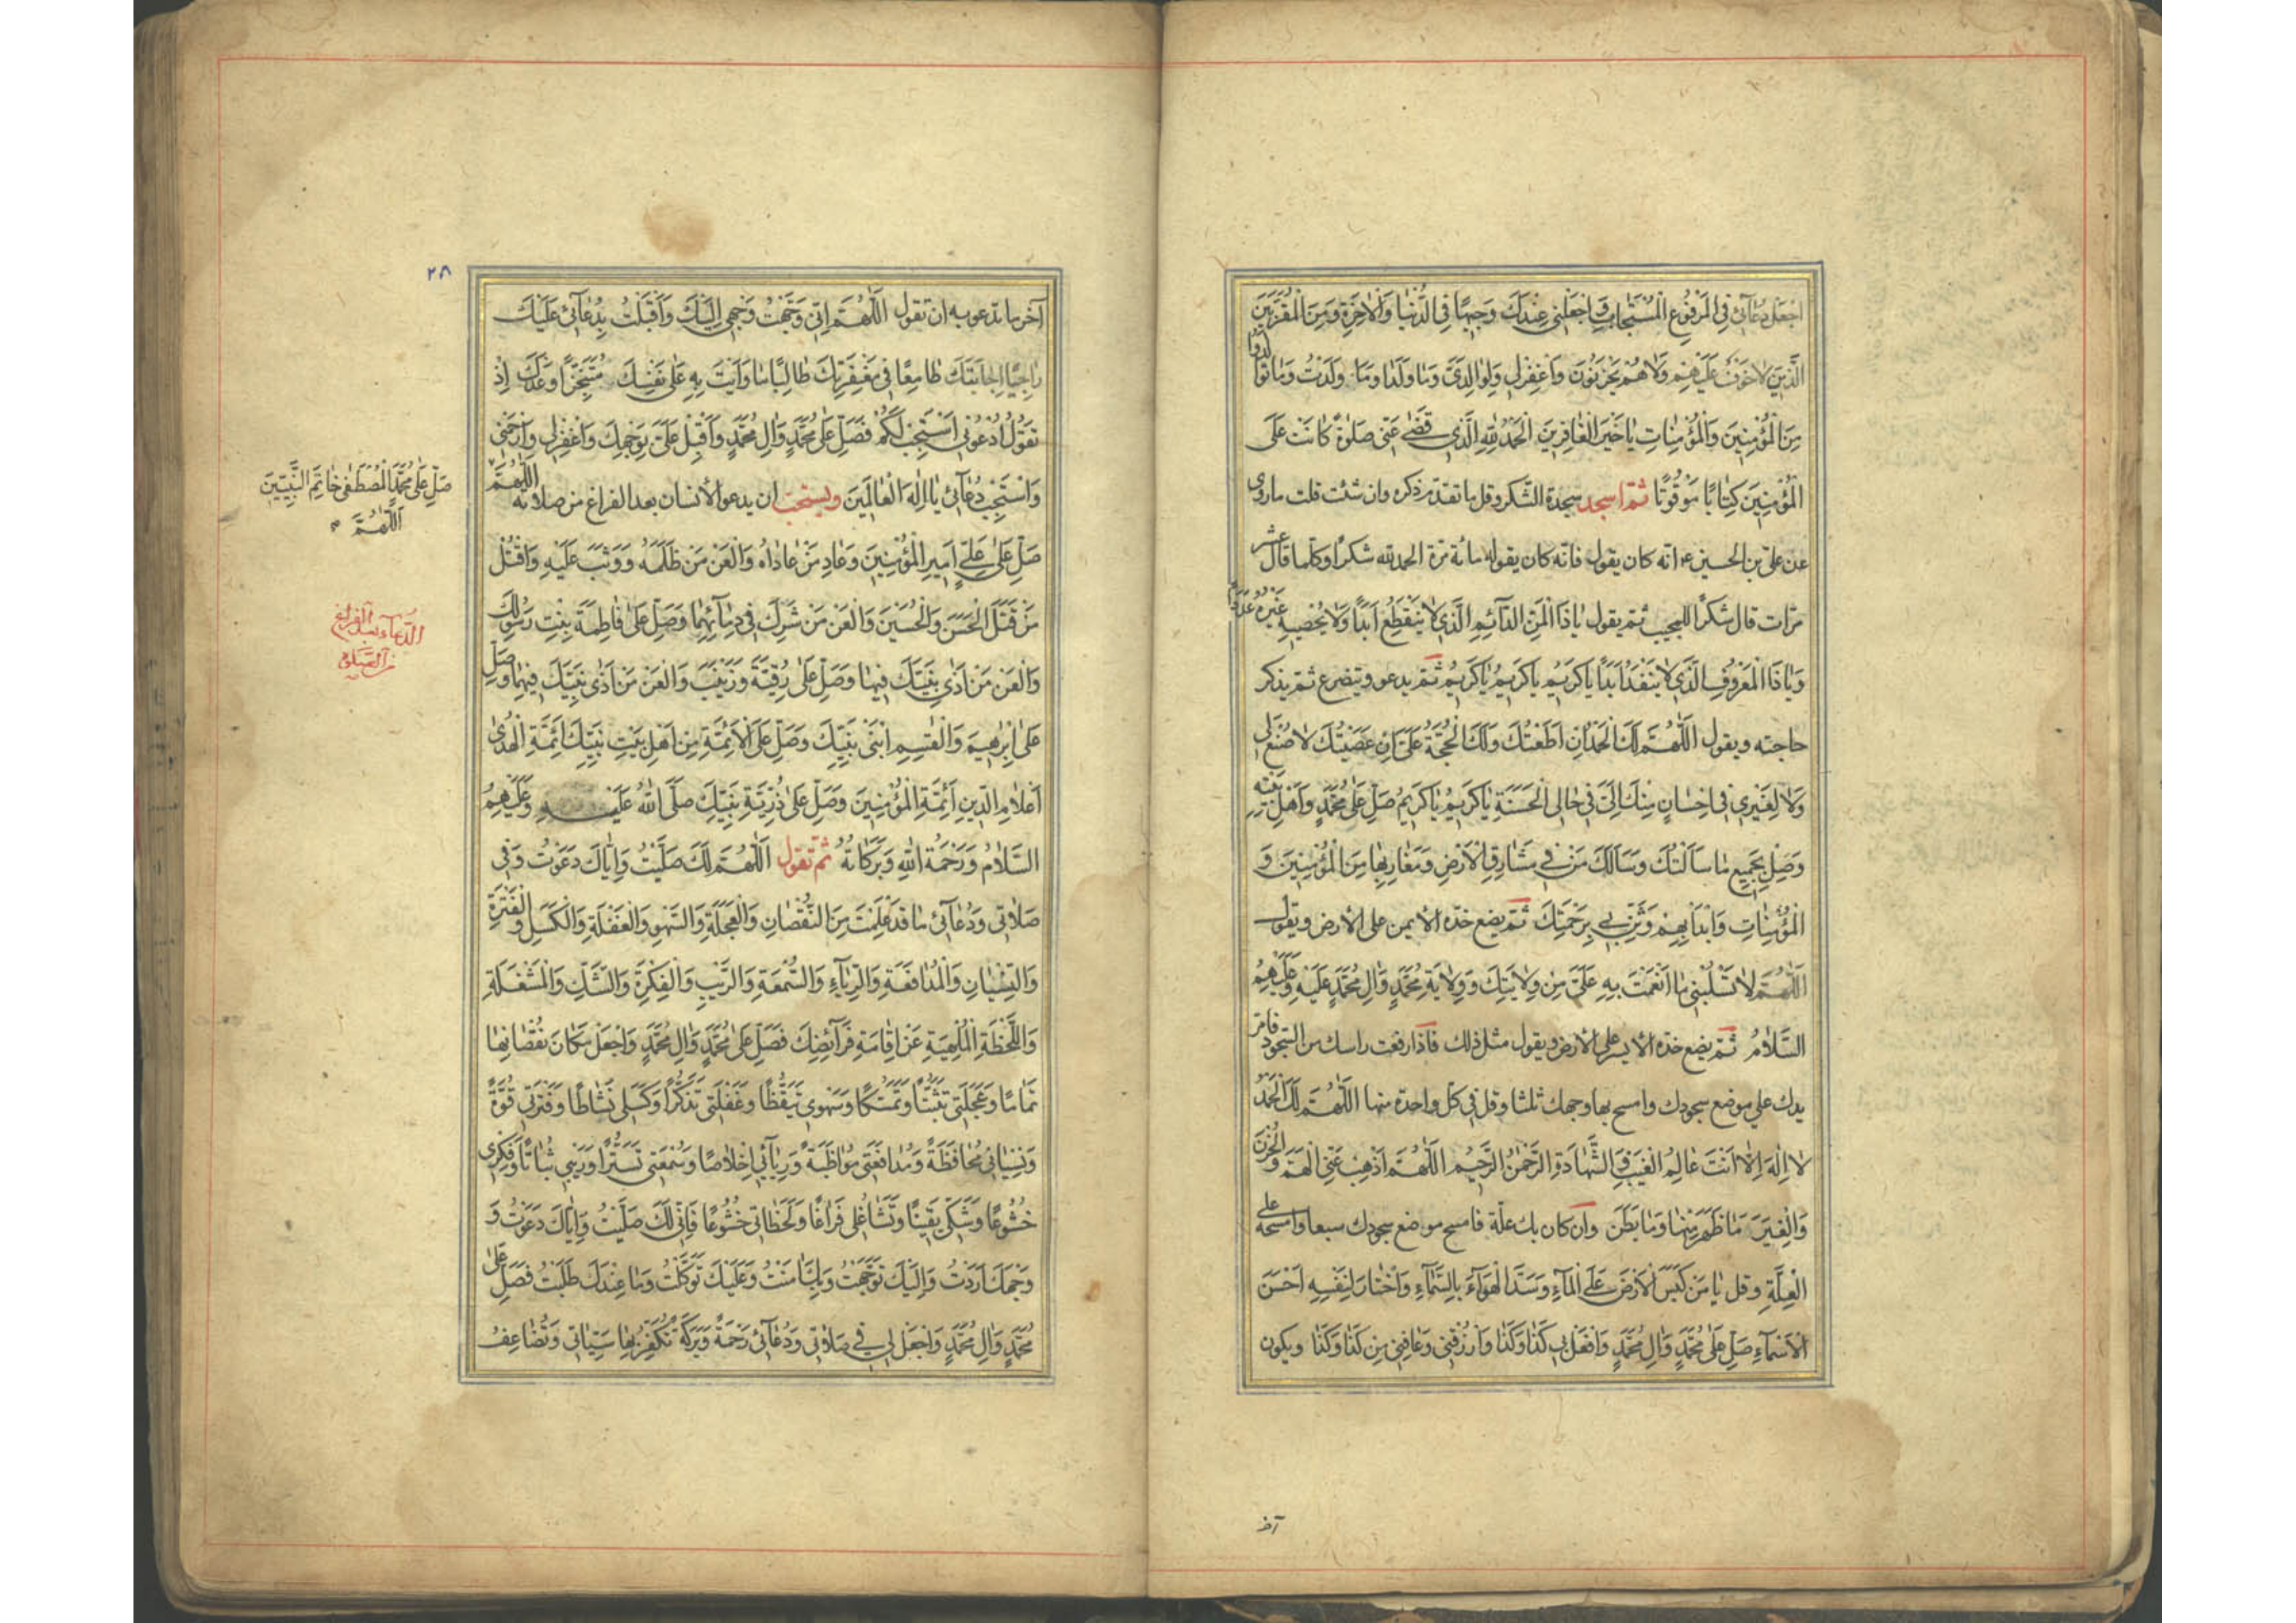 اجْعَلْ دُعَآئِي فِي الْمَرْفُوعِ الْمُسْتَجَابِ وَاجْعَلْنِي عِنْدَكَ وَجِيهًا فِي الدُّنْيَا وَالْاٰخِرَةِ وَمِنَ الْمُقَرَّبِينَ
الَّذِينَ لَا خَوْفٌ عَلَيْهِمْ وَلَا هُمْ يَحْزَنُونَ وَاغْفِرْ لِي وَلِوَالِدَيَّ وَمَا وَلَدَا وَمَا وَلَدْتُ وَمَا تَوَالَدُوا
مِنَ الْمُؤْمِنِينَ وَالْمُؤْمِنَاتِ يَا خَيْرَ الْغَافِرِينَ الْحَمْدُ لِلّٰهِ الَّذِي قَضٰى عَنِّي صَلٰوةً كَانَتْ عَلَى
الْمُؤْمِنِينَ كِتَابًا مَوْقُوتًا ثمّ اسجد سجدة الشّكر وقل ما تقدّم ذكره وان شئت قلت ما روى
عن علىّ بن الحسين ع انّه كان يقول فانّه كان يقوله مائة مرّة الحمد لله شكرًا وكلّما قال عشر
مرّات قال شكرًا للمجيب ثمّ يقول يَا ذَا الْمَنِّ الدَّائِمِ الَّذِي لَا يَنْقَطِعُ اَبَدًا وَلَا يُحْصِيهِ غَيْرُهُ عَدَدًا
وَيَا ذَا الْمَعْرُوفِ الَّذِي لَا يَنْفَدُ اَبَدًا يَا كَرِيمُ يَا كَرِيمُ يَا كَرِيمُ ثمّ يدعو ويتضرع ثمّ يذكر
حاجته ويقول اَللّٰهُمَّ لَكَ الْحَمْدُ اِنْ اَطَعْتُكَ وَلَكَ الْحُجَّةُ عَلَيَّ اِنْ عَصَيْتُكَ لَا صُنْعَ لِي
وَلَا لِغَيْرِي فِي اِحْسَانٍ مِنْكَ اِلَيَّ فِي حَالِي الْحَسَنَةِ يَا كَرِيمُ يَا كَرِيمُ صَلِّ عَلٰى مُحَمَّدٍ وَاَهْلِ بَيْتِهِ
وَصِلْ بِجَمِيعِ مَا سَاَلْتُكَ وَسَاَلَكَ مَنْ فِي مَشَارِقِ الْاَرْضِ وَمَغَارِبِهَا مِنَ الْمُؤْمِنِينَ وَ
الْمُؤْمِنَاتِ وَابْدَأْ بِهِمْ وَثَنِّ بِي بِرَحْمَتِكَ ثمّ يضع خدّه الأيمن على الأرض ويقول
اَللّٰهُمَّ لَا تَسْلُبْنِي مَا اَنْعَمْتَ بِهِ عَلَيَّ مِنْ وِلَايَتِكَ وَوِلَايَةِ مُحَمَّدٍ وَاٰلِ مُحَمَّدٍ عَلَيْهِ وَعَلَيْهِمُ
السَّلَامُ ثمّ يضع خدّه الأيسر على الأرض ويقول مثل ذلك فاذا رفعت راسك من السّجود فامر
يدك على موضع سجودك وامسح بها وجهك ثلثا وقل فى كلّ واحدة منها اَللّٰهُمَّ لَكَ الْحَمْدُ
لَا اِلٰهَ اِلَّا اَنْتَ عَالِمُ الْغَيْبِ وَالشَّهَادَةِ الرَّحْمٰنُ الرَّحِيمُ اَللّٰهُمَّ اَذْهِبْ عَنِّي الْهَمَّ وَالْحَزَنَ
وَالْغِيَرَ مَا ظَهَرَ مِنْهَا وَمَا بَطَنَ وان كان بك علّة فامسح موضع سجودك سبعا وامسحه على
العلّة وقل يَا مَنْ كَبَسَ الْاَرْضَ عَلَى الْمَآءِ وَسَدَّ الْهَوَآءَ بِالسَّمَآءِ وَاخْتَارَ لِنَفْسِهِ اَحْسَنَ
الْاَسْمَآءِ صَلِّ عَلٰى مُحَمَّدٍ وَاٰلِ مُحَمَّدٍ وَافْعَلْ بِي كَذَا وَكَذَا وَارْزُقْنِي وَعَافِنِي مِنْ كَذَا وَكَذَا ويكون
آخر
٢٨
آخر ما تدعو به ان تقول اَللّٰهُمَّ اِنِّي وَجَّهْتُ وَجْهِي اِلَيْكَ وَاَقْبَلْتُ بِدُعَآئِي عَلَيْكَ
رَاجِيًا اِجَابَتَكَ طَامِعًا فِي مَغْفِرَتِكَ طَالِبًا مَا وَاَيْتَ بِهِ عَلٰى نَفْسِكَ مُتَنَجِّزًا وَعْدَكَ اِذْ
تَقُولُ ادْعُونِي اَسْتَجِبْ لَكُمْ فَصَلِّ عَلٰى مُحَمَّدٍ وَاٰلِ مُحَمَّدٍ وَاَقْبِلْ عَلَيَّ بِوَجْهِكَ وَاغْفِرْ لِي وَارْحَمْنِي
وَاسْتَجِبْ دُعَآئِي يَا اِلٰهَ الْعَالَمِينَ ويستحبّ ان يدعو الأنسان بعد الفراغ من صلاته اَللّٰهُمَّ
صَلِّ عَلٰى مُحَمَّدٍ الْمُصْطَفٰى خَاتِمِ النَّبِيِّينَ
اَللّٰهُمَّ
صَلِّ عَلٰى عَلِيٍّ اَمِيرِ الْمُؤْمِنِينَ وَعَادِ مَنْ عَادَاهُ وَالْعَنْ مَنْ ظَلَمَهُ وَوَثَبَ عَلَيْهِ وَاقْتُلْ
مَنْ قَتَلَ الْحَسَنَ وَالْحُسَيْنَ وَالْعَنْ مَنْ شَرِكَ فِي دِمَآئِهِمَا وَصَلِّ عَلٰى فَاطِمَةَ بِنْتِ رَسُولِكَ
الدّعاء بعد الفراغ
من الصّلوة
وَالْعَنْ مَنْ اٰذٰى نَبِيَّكَ فِيهَا وَصَلِّ عَلٰى رُقَيَّةَ وَزَيْنَبَ وَالْعَنْ مَنْ اٰذٰى نَبِيَّكَ فِيهِمَا وَصَلِّ
عَلٰى اِبْرٰهِيمَ وَالْقٰسِمِ ابْنَيْ نَبِيِّكَ وَصَلِّ عَلَى الْاَئِمَّةِ مِنْ اَهْلِ بَيْتِ نَبِيِّكَ اَئِمَّةِ الْهُدٰى
اَعْلَامِ الدِّينِ اَئِمَّةِ الْمُؤْمِنِينَ وَصَلِّ عَلٰى ذُرِّيَّةِ نَبِيِّكَ صَلَّى اللّٰهُ عَلَيْهِ وَعَلَيْهِمُ
السَّلَامُ وَرَحْمَةُ اللّٰهِ وَبَرَكَاتُهُ ثمّ تقول اَللّٰهُمَّ لَكَ صَلَّيْتُ وَاِيَّاكَ دَعَوْتُ وَفِي
صَلَاتِي وَدُعَآئِي مَا قَدْ عَلِمْتَ مِنَ النُّقْصَانِ وَالْعَجَلَةِ وَالسَّهْوِ وَالْغَفْلَةِ وَالْكَسَلِ وَالْفَتْرَةِ
وَالنِّسْيَانِ وَالْمُدَافَعَةِ وَالرِّيَآءِ وَالسُّمْعَةِ وَالرَّيْبِ وَالْفِكْرَةِ وَالشَّكِّ وَالْمَشْغَلَةِ
وَاللَّحْظَةِ الْمُلْهِيَةِ عَنْ اِقَامَةِ فَرَآئِضِكَ فَصَلِّ عَلٰى مُحَمَّدٍ وَاٰلِ مُحَمَّدٍ وَاجْعَلْ مَكَانَ نُقْصَانِهَا
تَمَامًا وَعَجَلَتِي تَثَبُّتًا وَتَمَسُّكًا وَسَهْوِي تَيَقُّظًا وَغَفْلَتِي تَذَكُّرًا وَكَسَلِي نَشَاطًا وَفَتْرَتِي قُوَّةً
وَنِسْيَانِي مُحَافَظَةً وَمُدَافَعَتِي مُوَاظَبَةً وَرِيَآئِي اِخْلَاصًا وَسُمْعَتِي تَسَتُّرًا وَرَيْبِي ثَبَاتًا وَفِكْرِي
خُشُوعًا وَشَكِّي يَقِينًا وَتَشَاغُلِي فَرَاغًا وَلَحَظَاتِي خُشُوعًا فَاِنِّي لَكَ صَلَّيْتُ وَاِيَّاكَ دَعَوْتُ وَ
وَجْهَكَ اَرَدْتُ وَاِلَيْكَ تَوَجَّهْتُ وَبِكَ اٰمَنْتُ وَعَلَيْكَ تَوَكَّلْتُ وَمَا عِنْدَكَ طَلَبْتُ فَصَلِّ عَلٰى
مُحَمَّدٍ وَاٰلِ مُحَمَّدٍ وَاجْعَلْ لِي فِي صَلَاتِي وَدُعَآئِي رَحْمَةً وَبَرَكَةً تُكَفِّرُ بِهَا سَيِّئَاتِي وَتُضَاعِفُ